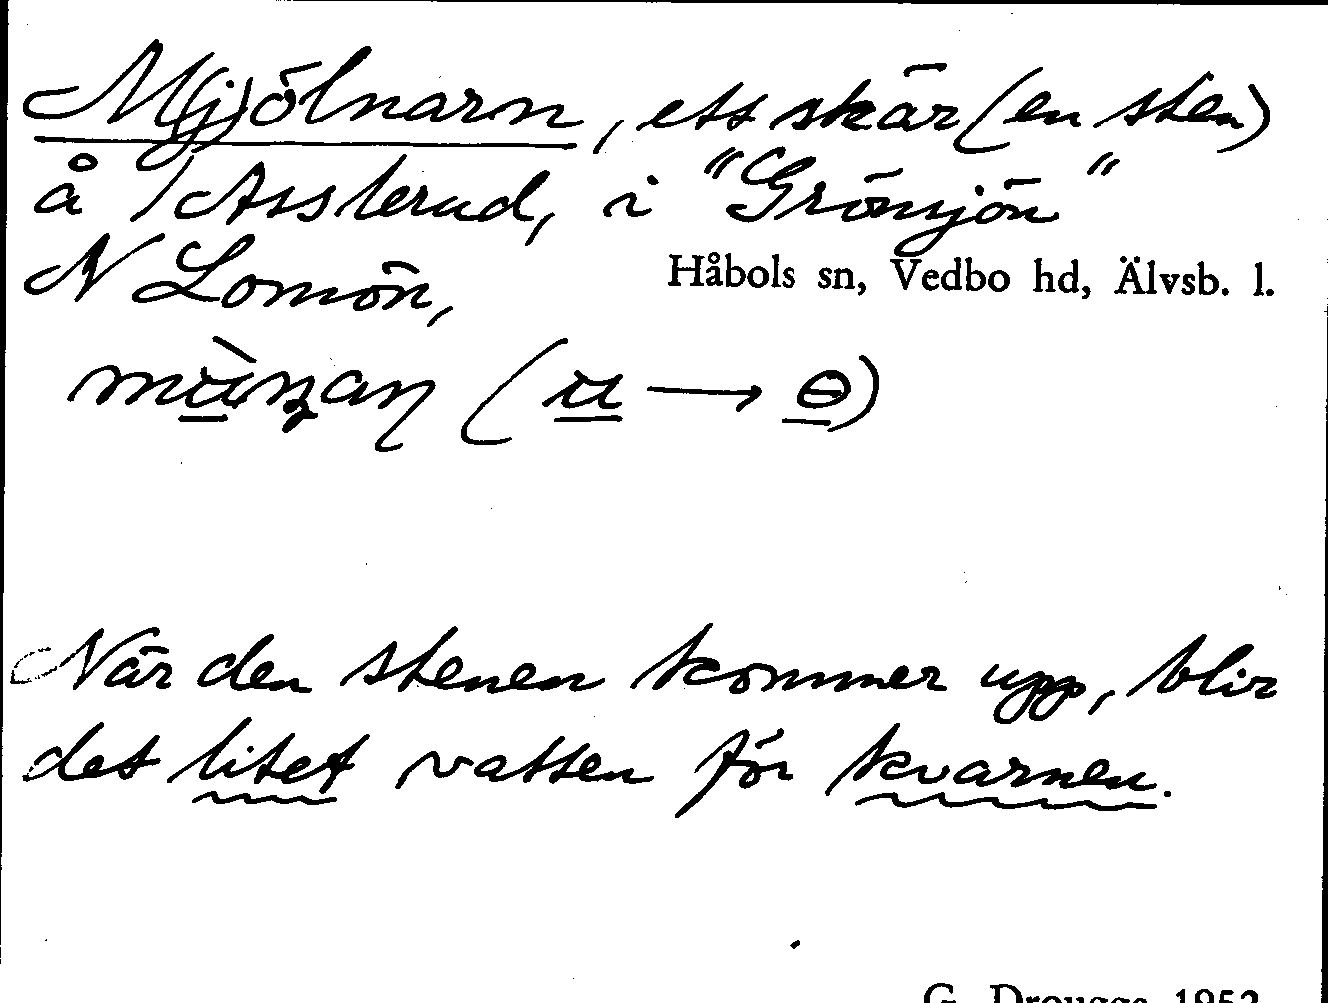 M(j)ölnarn, ett skär (en sten)
å /Asslerud, i "Grönsjön"
N Lomön,
Håbols sn, Vedbo hd, Älvsb. l.
(u → ɵ)
När den stenen kommer upp, blir
det litet vatten för kvarnen.
G. Drougge 1952